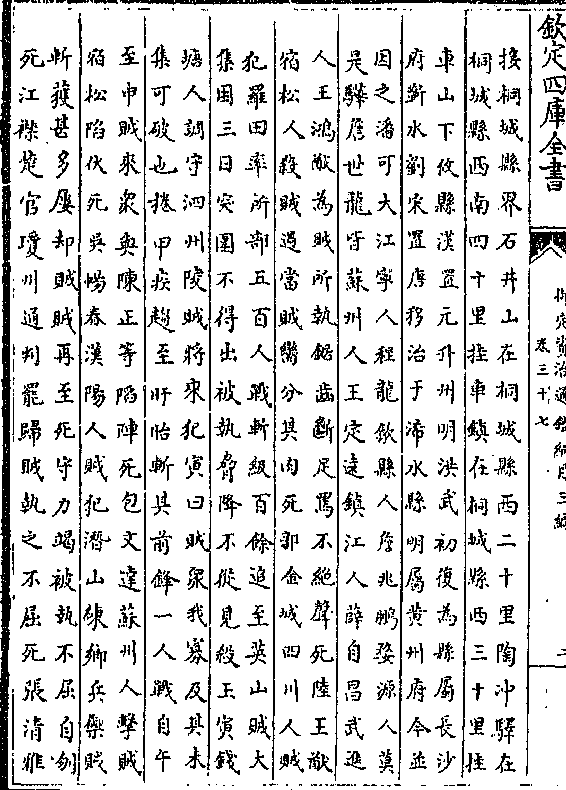 欽定四庫全書
御定資治通鑑綱目三編
卷三十七
二
接桐城縣界石井山在桐城縣西二十里陶沖驛在
桐城縣西南四十里挂車鎮在桐城縣西三十里挂
車山下攸縣漢置元升州明洪武初復為縣屬長沙
府蘄水劉宋置唐移治于浠水縣明屬黄州府今並
因之潘可大江寧人程龍歙縣人詹兆鵬婺源人莫
是驊詹世龍皆蘇州人王定遠鎮江人薛自昌武進
人王鴻猷為賊所執鋸齒斷足罵不絶聲死陸王猷
宿松人殺賊過當賊臠分其肉死郭金城四川人賊
犯羅田率所部五百人戰斬級百餘追至英山賊大
集困三日突圍不得出被執脅降不從見殺王寅錢
塘人調守泗州陵賊將來犯寅曰賊衆我寡及其未
集可破也捲甲疾趨至盱眙斬其前鋒一人戰自午
至申賊來衆與陳正等陷陣死包文達蘇州人擊賊
宿松陷伏死吳暢春漢陽人賊犯潛山練鄉兵禦賊
斬獲甚多屢却賊賊再至死守力竭被執不屈自刎
死江襟楚官瓊州通判罷歸賊執之不屈死張清雅